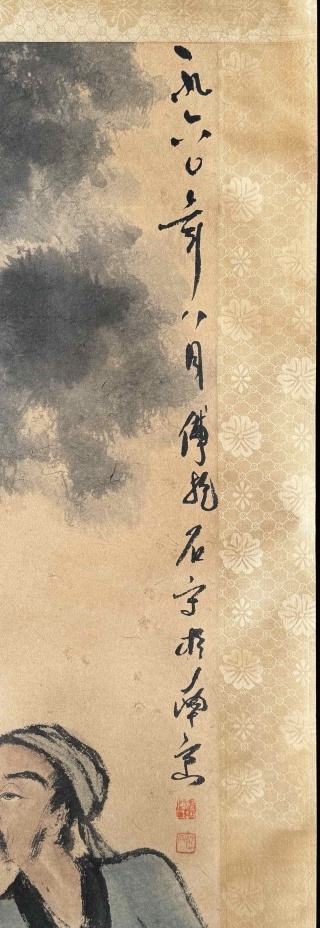 一九六〇年八月傅抱石写于南京